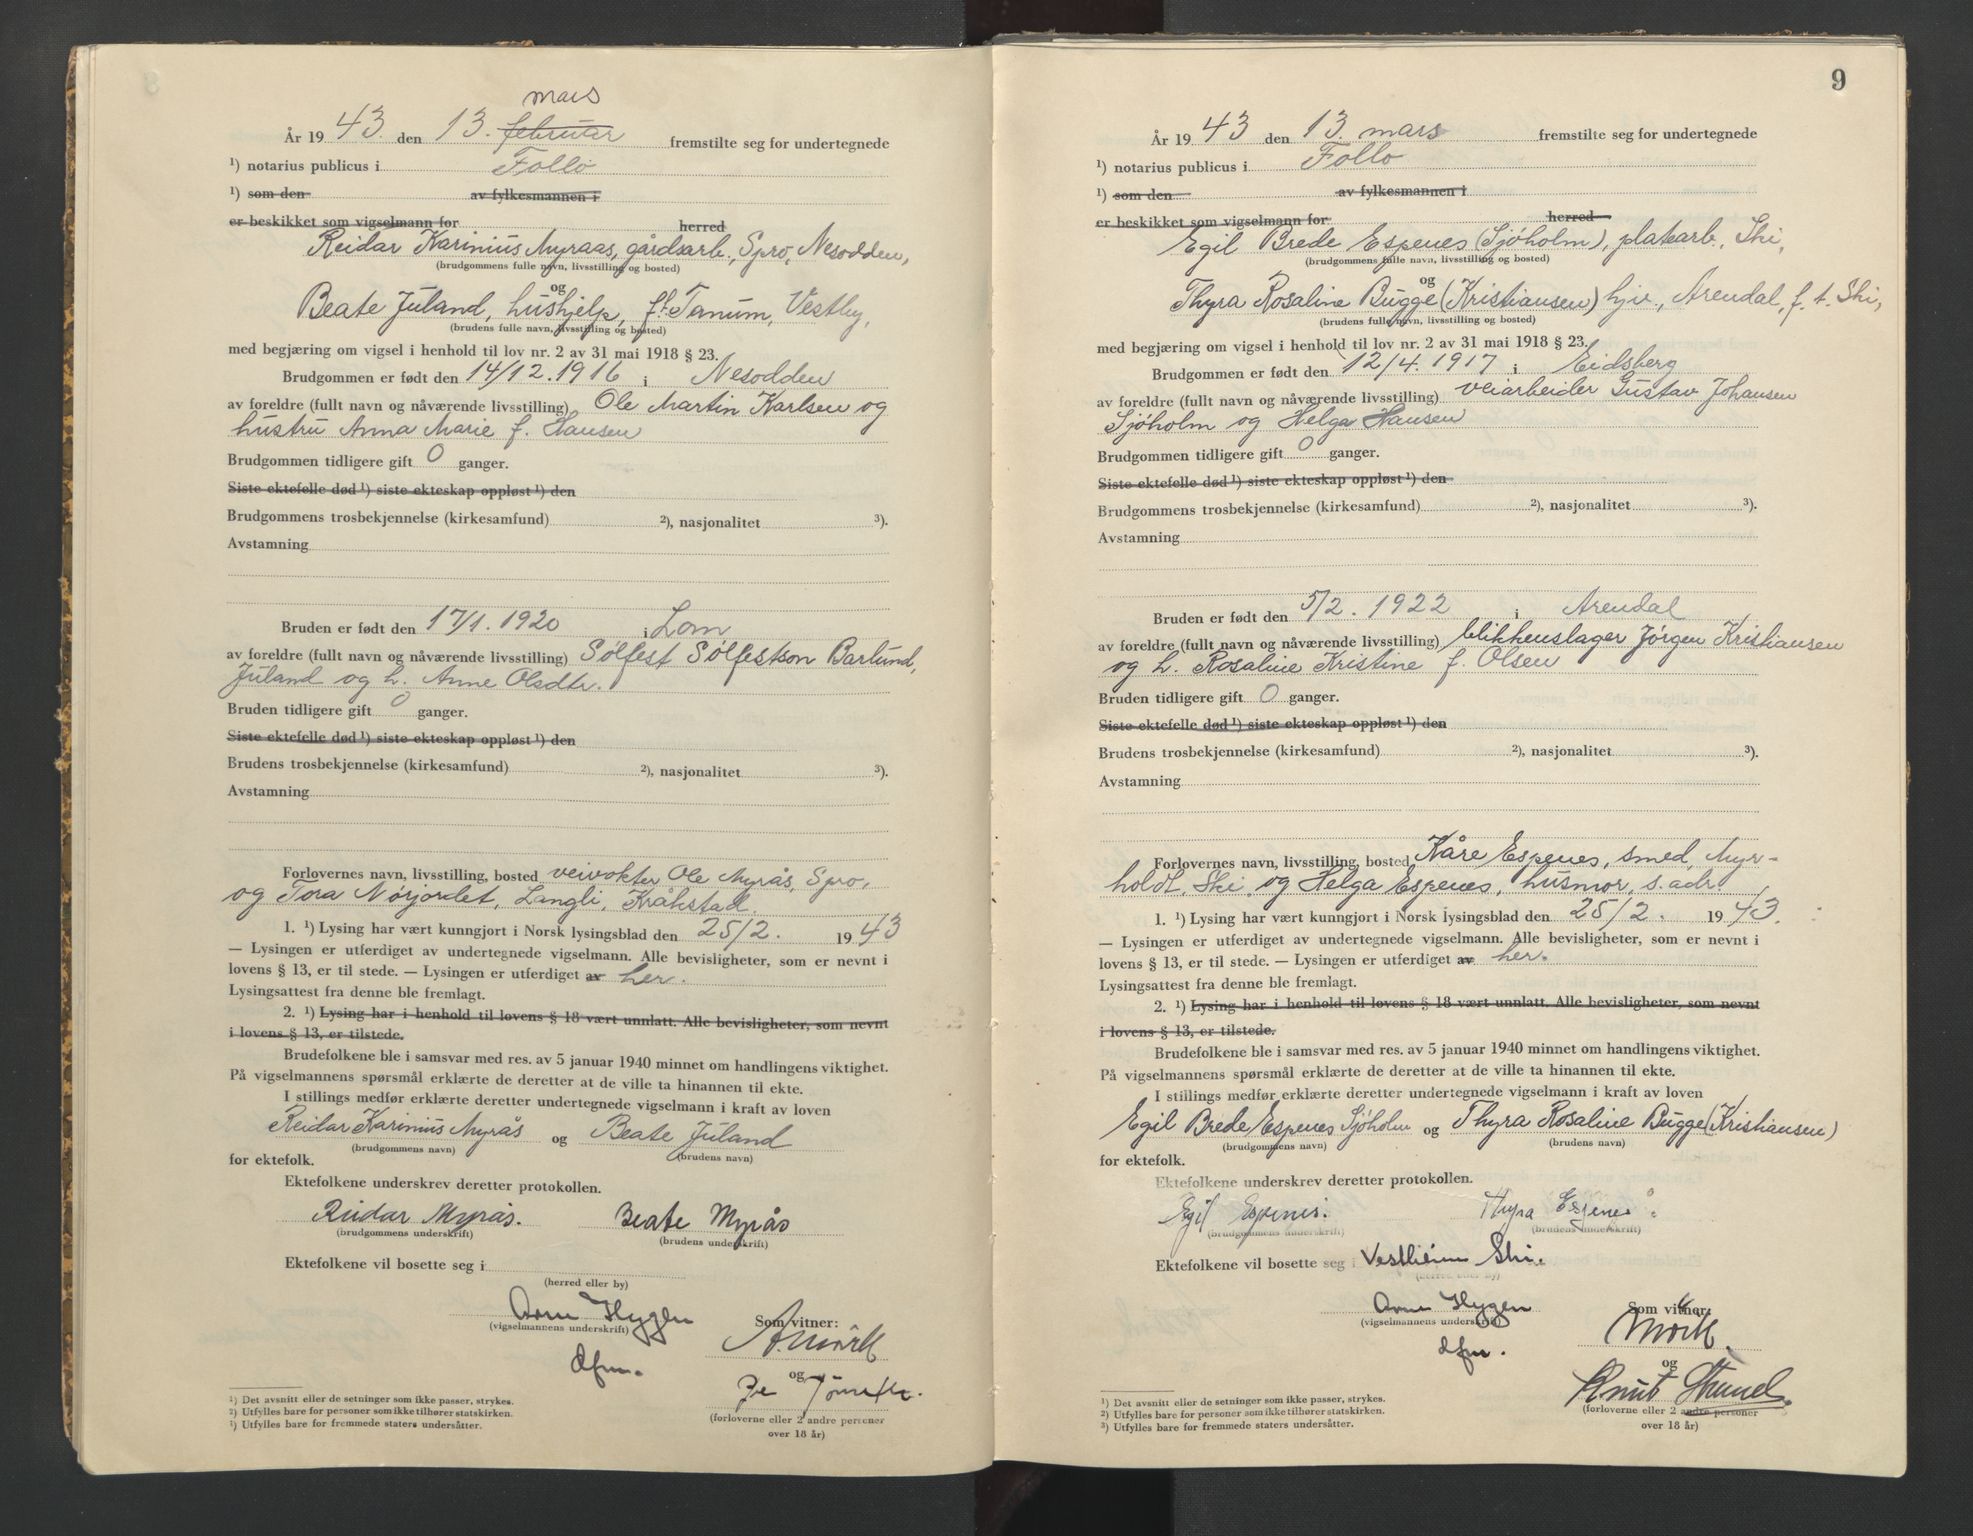 mars
År 19 43. den 13. februar fremstilte seg for undertegnede
¹) notarius publicus i Follo
¹) som den av fylkesmannen i
er beskikket som vigselmann for herred
Reidar Karinius Myraas, gårdsarb., Spro, Nesodden,
(brudgommens fulle navn, livsstilling og bosted)
og
Beate Juland, hushjelp, f.t. Tanum, Vestby,
(brudens fulle navn, livsstilling og bosted)
med begjæring om vigsel i henhold til lov nr. 2 av 31 mai 1918 § 23.
Brudgommen er født den 14/12.1916 i Nesodden
av foreldre (fullt navn og nåværende livsstilling) Ole Martin Karlsen og
hustru Anna Marie f. Hansen
Brudgommen tidligere gift 0 ganger.
Siste ektefelle død ¹) siste ekteskap oppløst ¹) den
Brudgommens trosbekjennelse (kirkesamfund) ²), nasjonalitet ³).
Avstamning
Bruden er født den 17/1. 1920 i Lom
av foreldre (fullt navn og nåværende livsstilling) Sølfest Sølfestson Barlund,
Juland og h. Anne Olsdtr.
Bruden tidligere gift 0 ganger.
Siste ektefelle død ¹) siste ekteskap oppløst ¹) den
Brudens trosbekjennelse (kirkesamfund) ²), nasjonalitet ³).
Avstamning
Forlovernes navn, livsstilling, bosted veivokter Ole Myrås, Spro,
og Tora Nørjordet, Langli, Kråkstad.
1. ¹) Lysing har vært kunngjort i Norsk lysingsblad den 25/2. 19 43
— Lysingen er utferdiget av undertegnede vigselmann. Alle bevisligheter, som er nevnt i
lovens § 13, er til stede. — Lysingen er utferdiget av her.
Lysingsattest fra denne ble fremlagt.
2. ¹) Lysing har i henhold til lovens § 18 vært unnlatt. Alle bevisligheter, som nevnt
i lovens § 13, er tilstede.
Brudefolkene ble i samsvar med res. av 5 januar 1940 minnet om handlingens viktighet.
På vigselmannens spørsmål erklærte de deretter at de ville ta hinannen til ekte.
I stillings medfør erklærte deretter undertegnede vigselmann i kraft av loven
Reidar Karinius Myrås og Beate Juland
(brudgommens navn) (brudens navn)
for ektefolk.
Ektefolkene underskrev deretter protokollen.
Reidar Myrås. Beate Myrås
(brudgommens underskrift) (brudens underskrift)
Ektefolkene vil bosette seg i
(herred eller by)
Arne Hygen
(vigselmannens underskrift) Som vitner:
dfm.
og
(forloverne eller 2 andre personer
over 18 år)
¹) Det avsnitt eller de setninger som ikke passer, strykes.
²) Utfylles bare for personer som ikke tilhører statskirken.
³) Utfylles bare for fremmede staters undersåtter.
9
År 19 43 den 13. mars fremstilte seg for undertegnede
¹) notarius publicus i Follo
¹) som den av fylkesmannen i
er beskikket som vigselmann for herred
Egil Brede Espenes (Sjøholm), platearb., Ski,
(brudgommens fulle navn, livsstilling og bosted)
og
Thyra Rosaline Bugge (Kristiansen) hjv., Arendal, f. t. Ski,
(brudens fulle navn, livsstilling og bosted)
med begjæring om vigsel i henhold til lov nr. 2 av 31 mai 1918 § 23.
Brudgommen er født den 12/4. 1917 i Eidsberg
av foreldre (fullt navn og nåværende livsstilling) veiarbeider Gustav Johansen
Sjøholm og Helga Hansen
Brudgommen tidligere gift 0 ganger.
Siste ektefelle død ¹) siste ekteskap oppløst ¹) den
Brudgommens trosbekjennelse (kirkesamfund) ²), nasjonalitet ³).
Avstamning
Bruden er født den 5/2. 1922 i Arendal
av foreldre (fullt navn og nåværende livsstilling) blikkenslager Jørgen Kristiansen
og h. Rosaline Kristine f. Olsen
Bruden tidligere gift 0 ganger.
Siste ektefelle død ¹) siste ekteskap oppløst ¹) den
Brudens trosbekjennelse (kirkesamfund) ²), nasjonalitet ³).
Avstamning
Forlovernes navn, livsstilling, bosted Kåre Espenes, smed, Myr-
holdt, Ski, og Helga Espenes, husmor, s. adr.
1. ¹) Lysing har vært kunngjort i Norsk lysingsblad den 25/2. 19 43.
— Lysingen er utferdiget av undertegnede vigselmann. Alle bevisligheter, som er nevnt i
lovens § 13, er til stede. — Lysingen er utferdiget av her.
Lysingsattest fra denne ble fremlagt.
2. ¹) Lysing har i henhold til lovens § 18 vært unnlatt. Alle bevisligheter, som nevnt
i lovens § 13, er tilstede.
Brudefolkene ble i samsvar med res. av 5 januar 1940 minnet om handlingens viktighet.
På vigselmannens spørsmål erklærte de deretter at de ville ta hinannen til ekte.
I stillings medfør erklærte deretter undertegnede vigselmann i kraft av loven
Egil Brede Espenes Sjöholm og Thyra Rosaline Bugge (Kristiansen)
(brudgommens navn) (brudens navn)
for ektefolk.
Ektefolkene underskrev deretter protokollen.
Egil Espenes. Thyra Espenes
(brudgommens underskrift) (brudens underskrift)
Ektefolkene vil bosette seg i Vestheim Ski.
(herred eller by)
Arne Hygen Som vitner:
(vigselmannens underskrift)
dfm.
og
Knut
(forloverne eller 2 andre personer
over 18 år)
¹) Det avsnitt eller de setninger som ikke passer, strykes.
²) Utfylles bare for personer som ikke tilhører statskirken.
³) Utfylles bare for fremmede staters undersåtter.